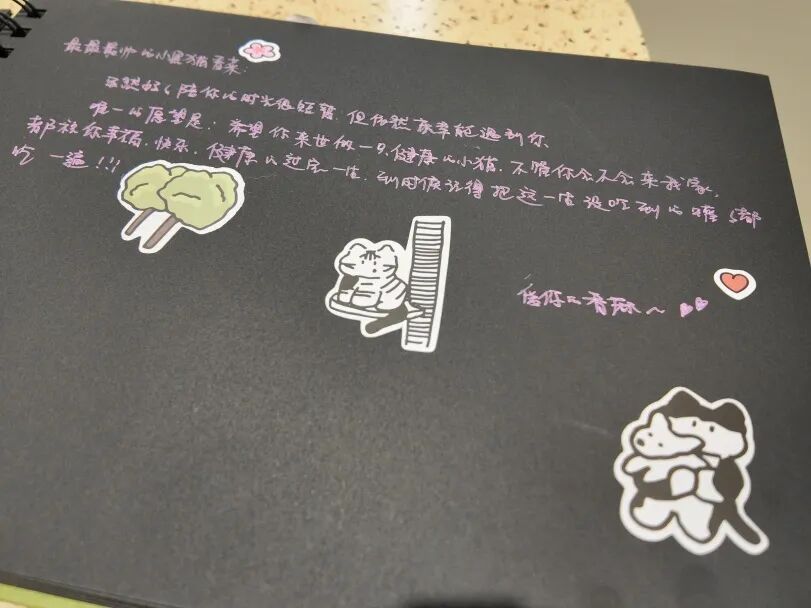 最最最帅的小黑猫看来:
虽然妈妈陪你的时光很短暂,但依然庆幸能遇到你
唯一的愿望是:希望你来世做一只健康的小猫,不管你会不会来我家,
都祝你幸福、快乐、健康的过完一生,到时候记得把这一生没吃到的罐罐都
吃一遍!!!
~